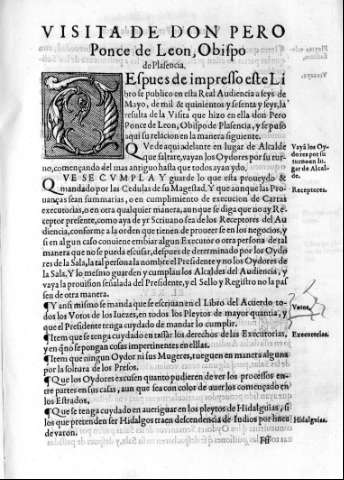 VISITA DE DON PERO
Ponce de Leon, Obispo
de Plasencia.
DEspues de impresso este Li
bro se publico en esta Real Audiencia a seys de
Mayo, de mil & quinientos y sesenta y seys, la
resulta de la Visita que hizo en ella don Pero
Ponce de Leon, Obispo de Plasencia, y se puso
aqui su relacion en la manera siguiente.
QVe de aqui adelante en lugar de Alcalde
que faltare, vayan los Oydores por su tur-
no, començando del mas antiguo hasta que todos ayan ydo.
Vayã los Oy-
dores por su
turno en lu
gar de Alcal-
de.
QVE SE CVMPLA Y guarde lo que esta proueydo &
mandado por las Cedulas de su Magestad. Y que aun que las Pro-
uanças sean summarias, o en cumplimiento de execucion de Cartas
executorias, o en otra qualquier manera, aun que se diga que no ay Re-
ceptor presente, como aya de yr Scriuano sea de los Receptores del Au-
diencia, conforme a la orden que tienen de proueer se en los negocios, y
si en algun caso conuiene embiar algun Executor o otra persona de tal
manera que no se pueda escusar, despues de determinado por los Oydo
res de la Sala, la tal persona la nombre el Presidente y no los Oydores de
la Sala, Y lo mesmo guarden y cumplan los Alcaldes del Audiencia, y
vaya la prouision señalada del Presidente, y el Sello y Registro no la pas
sen de otra manera.
Receptores.
¶Y ansi mismo se manda que se escriuan en el Libro del Acuerdo to-
dos los Votos de los Iuezes, en todos los Pleytos de mayor quantia, y
que el Presidente tenga cuydado de mandar lo cumplir.
Votos.
¶Item que se tenga cuydado en tassar los derechos de las Executorias,
y en q̃ no se pongan cosas impertinentes en ellas.
Executorias.
¶Item que ningun Oydor ni sus Mugeres, rueguen en manera alguna
por la soltura de los Presos.
¶Que los Oydores escusen quanto pudieren de ver los processos en-
tre partes en sus casas, aun que sea con color de auer los començado en
los Estrados.
¶Que se tenga cuydado en aueriguar en los pleytos de Hidalguias, si
los que pretenden ser Hidalgos traen descendencia de Indios por linea
de varon.
Hidalguias.